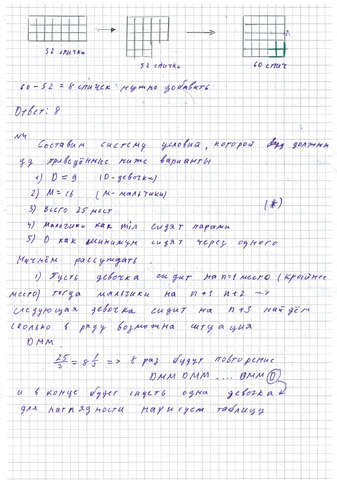 52 спички
52 спички
60 спич
60-52=8 спичек нужно добавить
Ответ: 8
N4
Составим систему условий, которой должны
приведённые ниже варианты
1) D = 9 (D-девочки)
2) M = 16 (M-мальчики)
3) Всего 25 мест
(*)
4) Мальчики как сидят парами
5) D как минимум сидят через одного
Начнём рассуждать.
1) Пусть девочка сидит на n=1 место (крайнее
место) тогда мальчики на n+1 n+2 →
следующая девочка сидит на n+3 найдём
сколько в ряду возможна ситуация
DMM
25/3 = 8 1/3 => 8 раз будут повторение
DMM DMM .... DMM D
и в конце будет сидеть одна девочка
для наглядности нарисуем таблицу